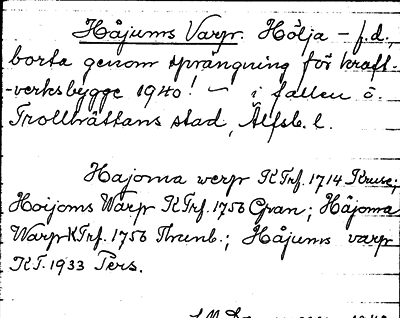 Håjums Varp. Hölja - f.d.,
borta genom sprängning för kraft-
-verksbygge 1940! - i fallen ö.
Trollhättans stad, Älfsb. l.
Hajoma werp KTrf. 1714 Kruse;
Hoijoms Warp KTrf. 1756 Gran; Håjoma
Warp KTrf. 1756 Thunb.; Håjums varp
KT. 1933 Pers.